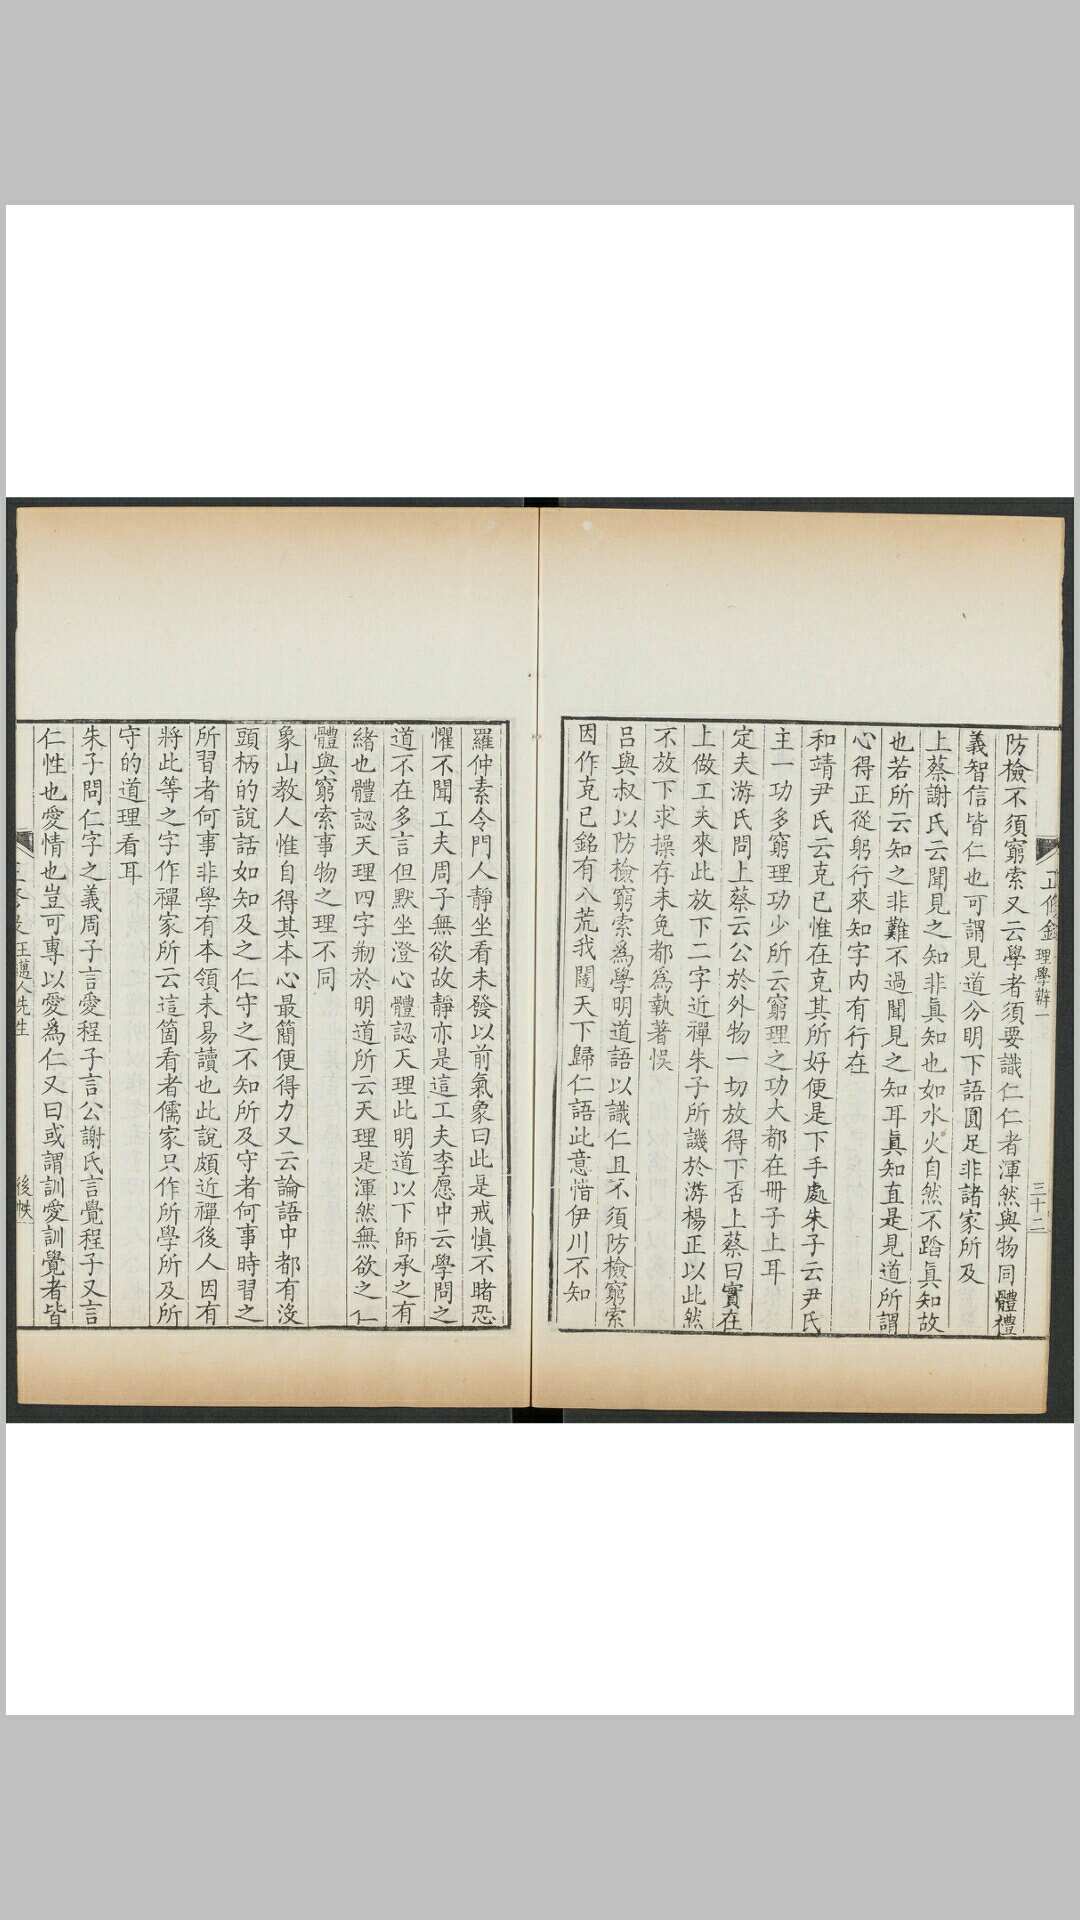 正修錄
理學辯一
三十二
防檢不須窮索又云學者須要識仁仁者渾然與物同體禮
義智信皆仁也可謂見道分明下語圓足非諸家所及
上蔡謝氏云聞見之知非真知也如水火自然不踏真知故
也若所云知之非難不過聞見之知耳真知直是見道所謂
心得正從躬行來知字內有行在
和靖尹氏云克已惟在克其所好便是下手處朱子云尹氏
主一功多窮理功少所云窮理之功大都在冊子上耳
定夫游氏問上蔡云公於外物一切放得下否上蔡曰實在
上做工夫來此放下二字近禪朱子所譏於游楊正以此然
不放下求操存未免都為執著悞
呂與叔以防檢窮索為學明道語以識仁且不須防檢窮索
因作克已銘有八荒我闥天下歸仁語此意惜伊川不知
羅仲素令門人靜坐看未發以前氣象曰此是戒慎不睹恐
懼不聞工夫周子無欲故靜亦是這工夫李愿中云學問之
道不在多言但默坐澄心體認天理此明道以下師承之有
緒也體認天理四字剏於明道所云天理是渾然無欲之仁
體與窮索事物之理不同
象山教人惟自得其本心最簡便得力又云論語中都有沒
頭柄的說話如知及之仁守之不知所及守者何事時習之
所習者何事非學有本領未易讀也此說頗近禪後人因有
將此等之字作禪家所云這箇看者儒家只作所學所及所
守的道理看耳
朱子問仁字之義周子言愛程子言公謝氏言覺程子又言
仁性也愛情也豈可專以愛為仁又曰或謂訓愛訓覺者皆
汪蘧人先生
後帙